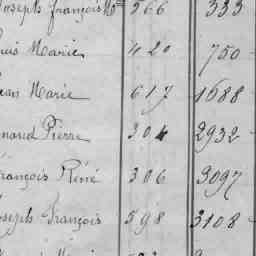 Joseph françois Mie 566 333
Louis Marie 420 750
Jean Marie 617 1688
Pierre 304 2932
François Réné 306 3097
Joseph François 598 3108